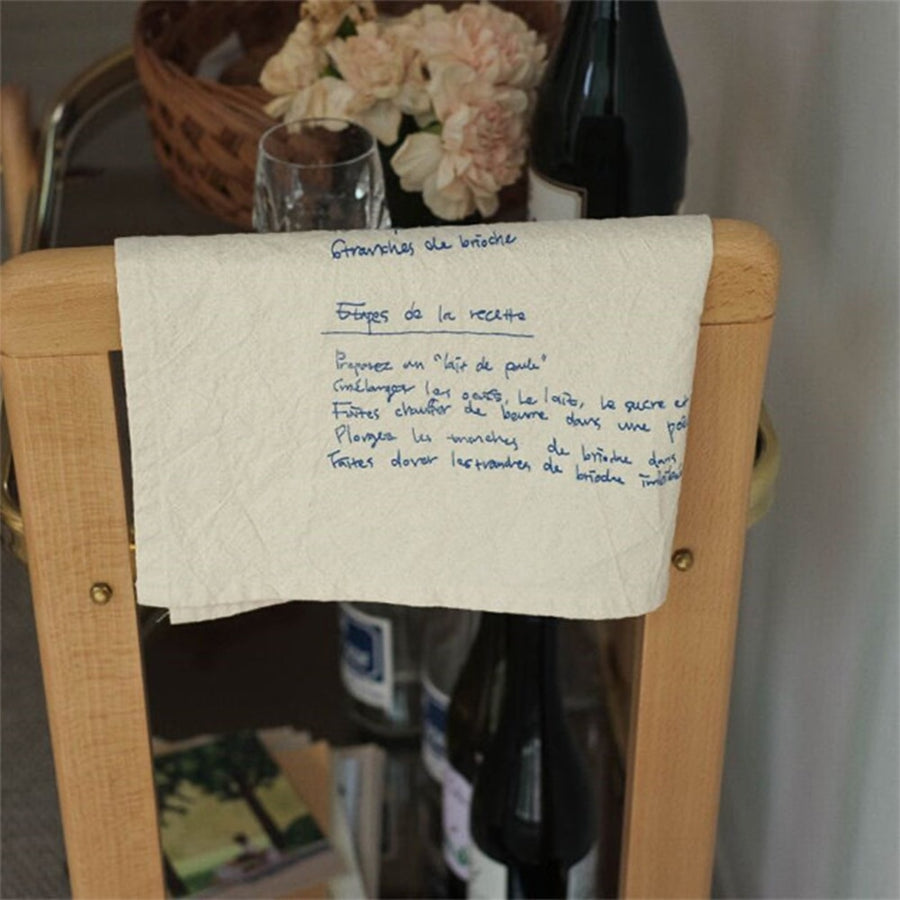 6tranches de brioche
Etapes de la recette
Preparez un "lait de poule"
(mélanger les oeufs, le lait, le sucre et
Faites chauffer de beurre dans une poê
Plongez les tranches de brioche dans
Faites dorer les tranches de brioche imbibées